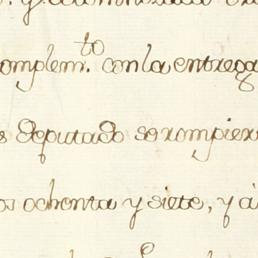 omplem.to con la entrega
s deputado se rompier
os ochenta y siete, y à